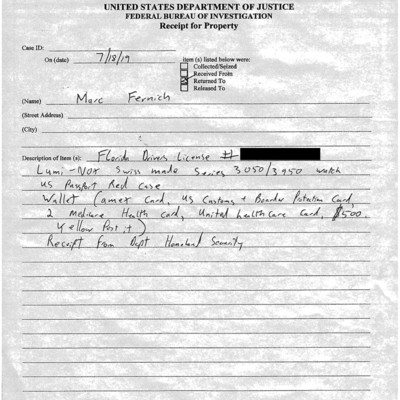 UNITED STATES DEPARTMENT OF JUSTICE
FEDERAL BUREAU OF INVESTIGATION
Receipt for Property
Case ID:
On (date) 7/18/19 item (s) listed below were:
Collected/Seized
Received From
Returned To
Released To
(Name) Marc Fernich
(Street Address)
(City)
Description of Item (s): Florida Drivers License #
Lumi-Nox Swiss made Series 3050/3950 watch
US Passport Red Case
Wallet (amex Card, US Customs + Boarder Patrol Card,
2 Medicare Health card, United healthcare Card, $500.
Yellow Post it)
Receipt from Dept Homeland Security